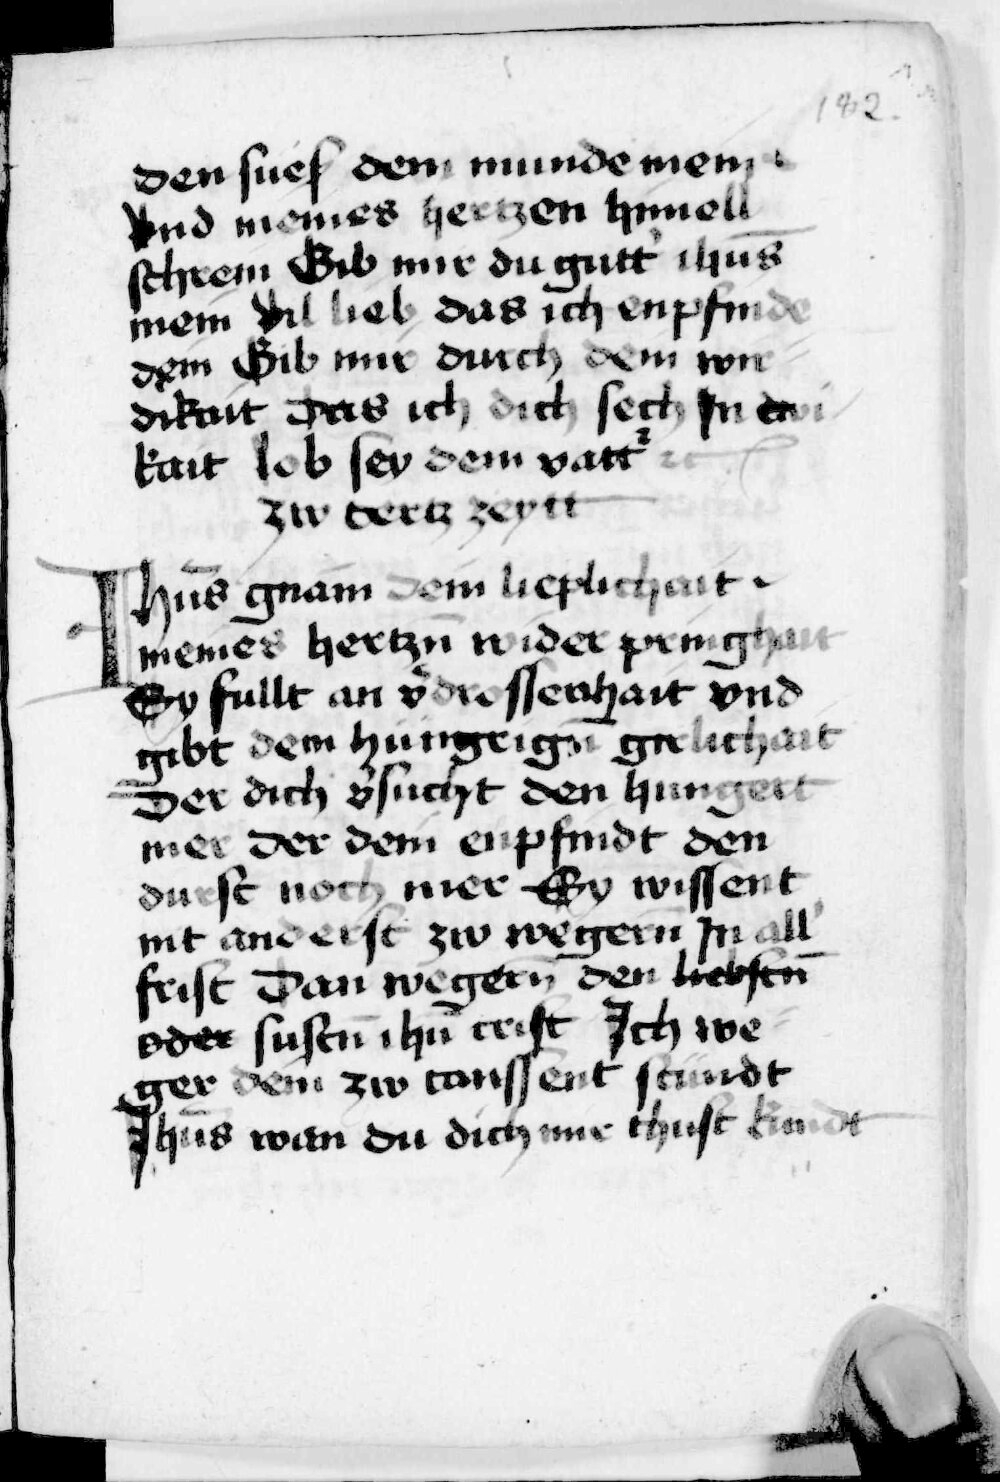 182.
den suess dem munde mein
Vnd meines hertzen himell
schrein Gib mir du gutt' ihūs
mein Vil lieb das ich enpfinde
dein Gib mir durch dein wir
dikait Das ich dich sech In ewi
kait lob sey dem vatt' ꝛc
zw tertz zeytt
Ihūs gnam dein lieplichait
meines hertzn̄ wider pringhait
Sy fullt an v̄drossenhait vnd
gibt dem hüngrign̄ girlichait
Der dich v̄sucht den hungert
mer Der dein enpfindt den
durst noch mer Sy wissent
nit anderst zw wegern̄ In all'
frist Dan wegern̄ den liebstn̄
oder sustn̄ ihū crist Ich we
ger dein zw taussent stündt
Ihūs wan du dich mir thust kündt